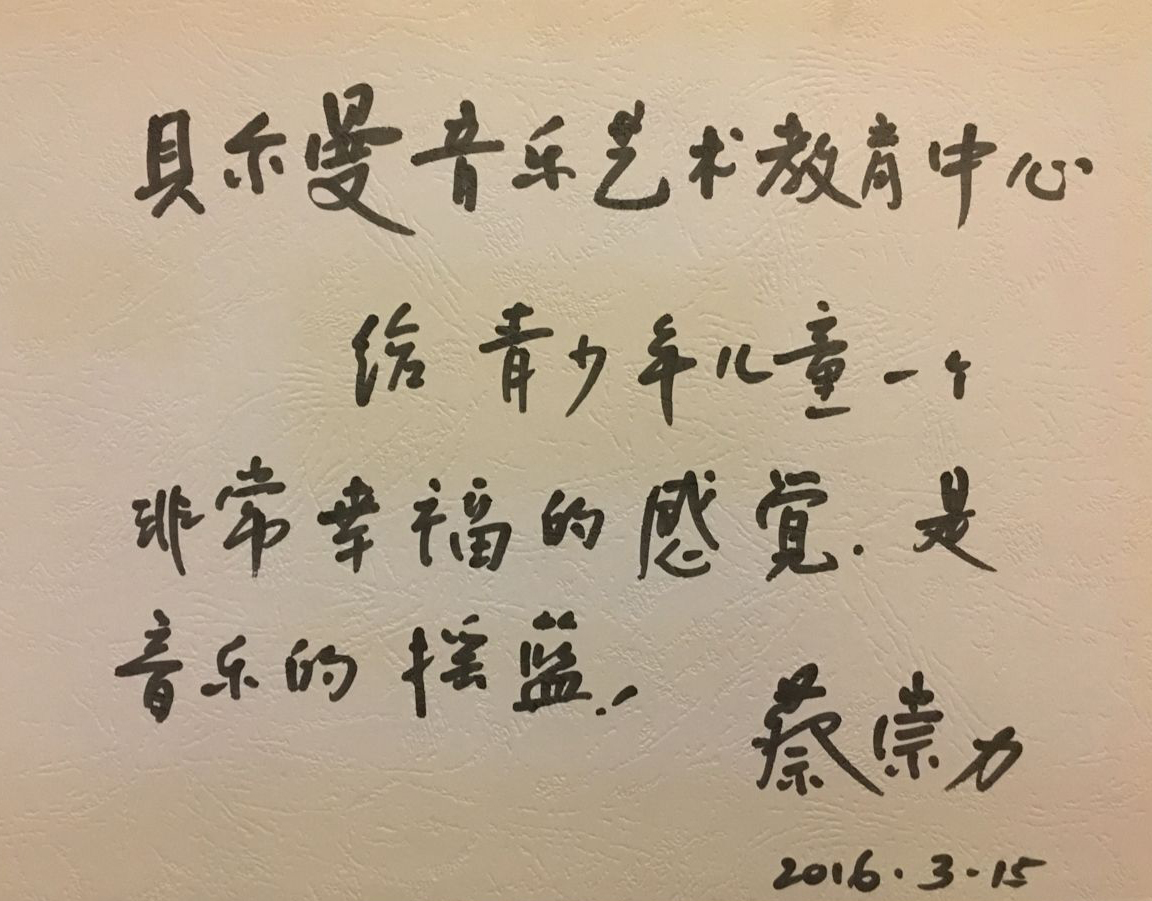 贝尔曼音乐艺术教育中心
给青少年儿童一个
非常幸福的感觉.是
音乐的摇蓝!
蔡崇力
2016.3.15